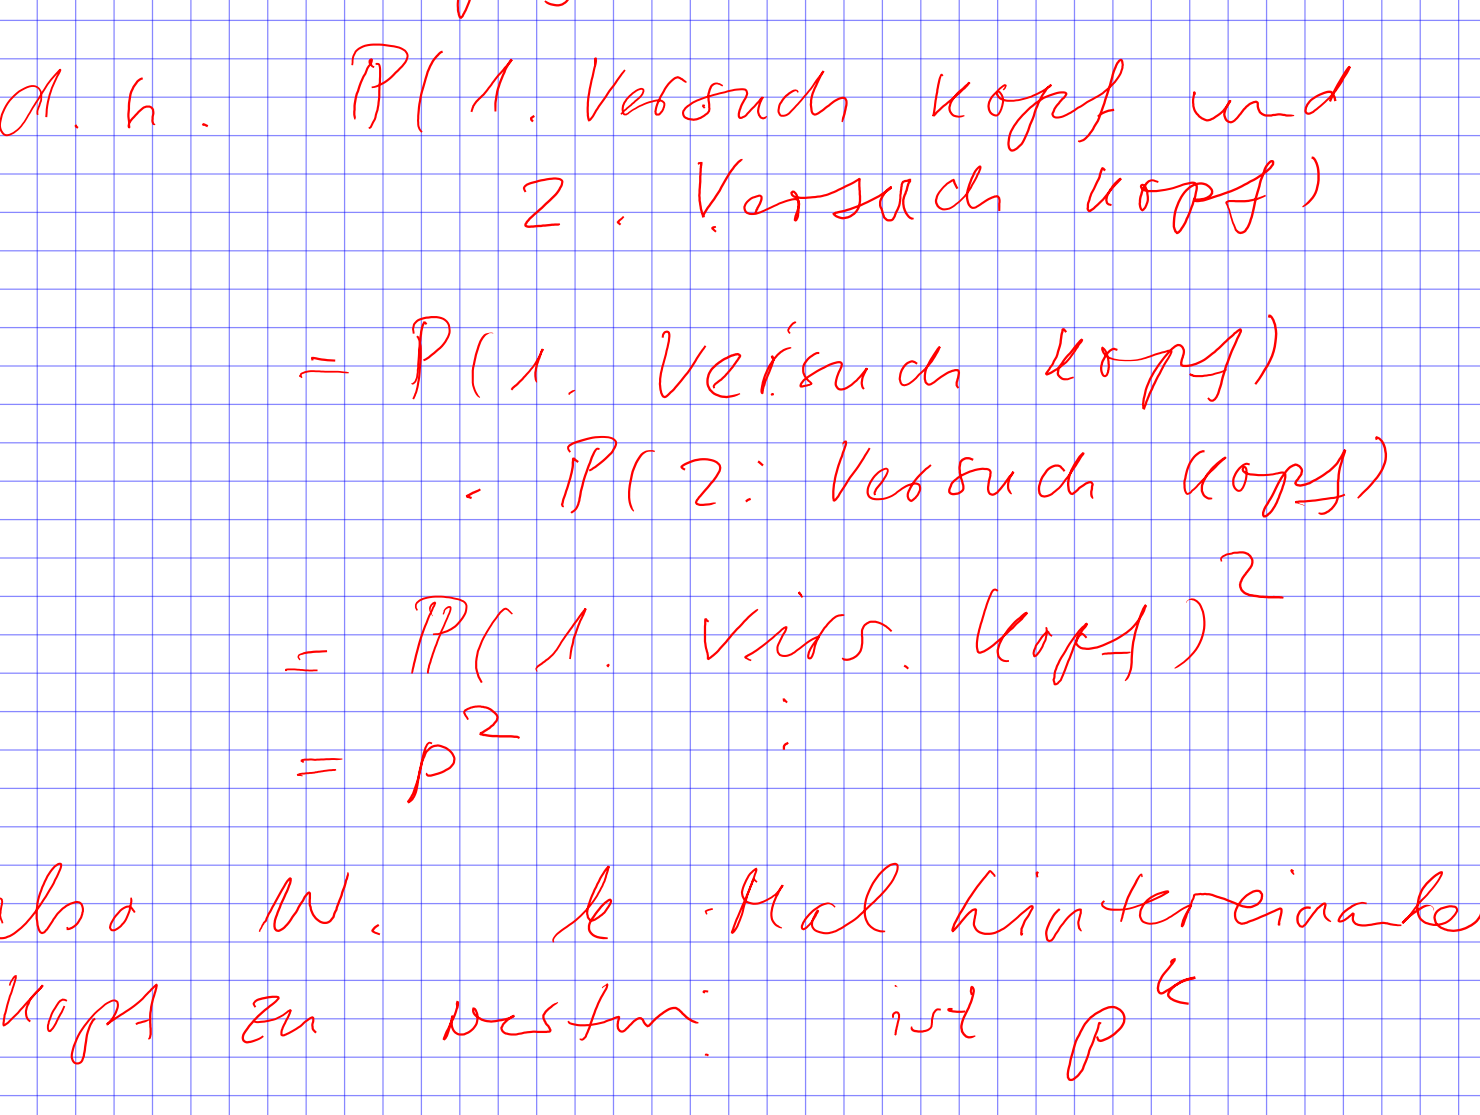 d.h. ℙ(1. Versuch Kopf und
2. Versuch Kopf)
= P(1. Versuch Kopf)
· ℙ(2. Versuch Kopf)
= ℙ(1. Vers. Kopf)²
= p²
also W. k Mal hintereinander
Kopf zu ist p^k